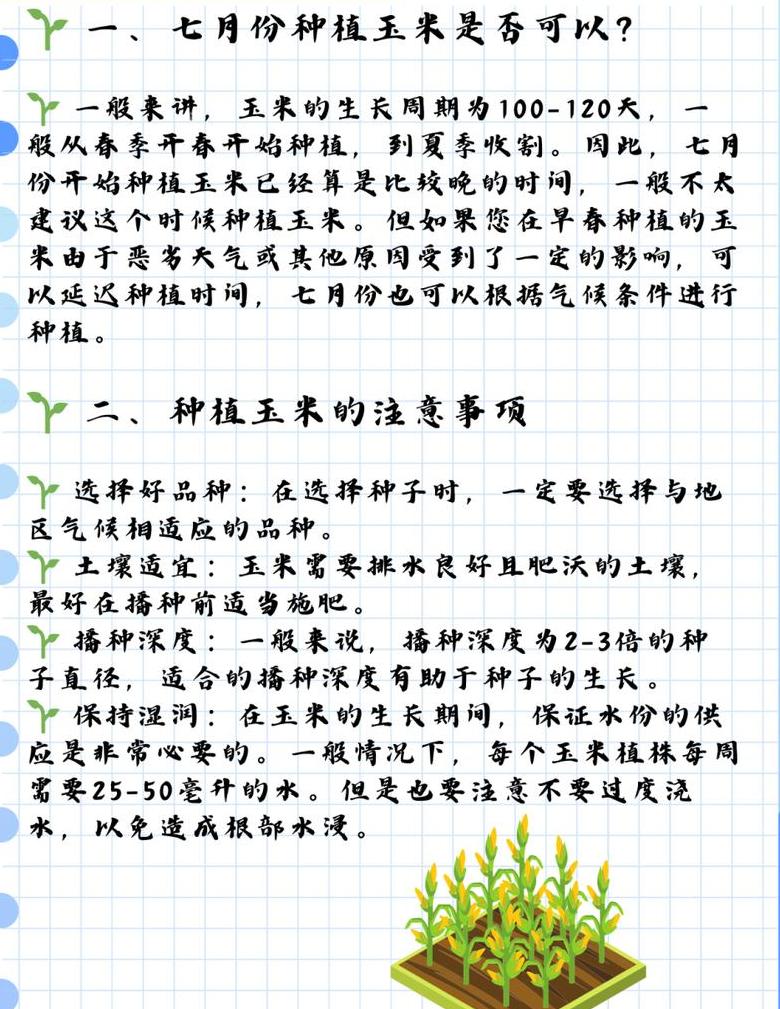 一、七月份种植玉米是否可以？
一般来讲，玉米的生长周期为100-120天，一
般从春季开春开始种植，到夏季收割。因此，七月
份开始种植玉米已经算是比较晚的时间，一般不太
建议这个时候种植玉米。但如果您在早春种植的玉
米由于恶劣天气或其他原因受到了一定的影响，可
以延迟种植时间，七月份也可以根据气候条件进行
种植。
二、种植玉米的注意事项
选择好品种：在选择种子时，一定要选择与地
区气候相适应的品种。
土壤适宜：玉米需要排水良好且肥沃的土壤，
最好在播种前适当施肥。
播种深度：一般来说，播种深度为2-3倍的种
子直径，适合的播种深度有助于种子的生长。
保持湿润：在玉米的生长期间，保证水份的供
应是非常必要的。一般情况下，每个玉米植株每周
需要25-50毫升的水。但是也要注意不要过度浇
水，以免造成根部水浸。